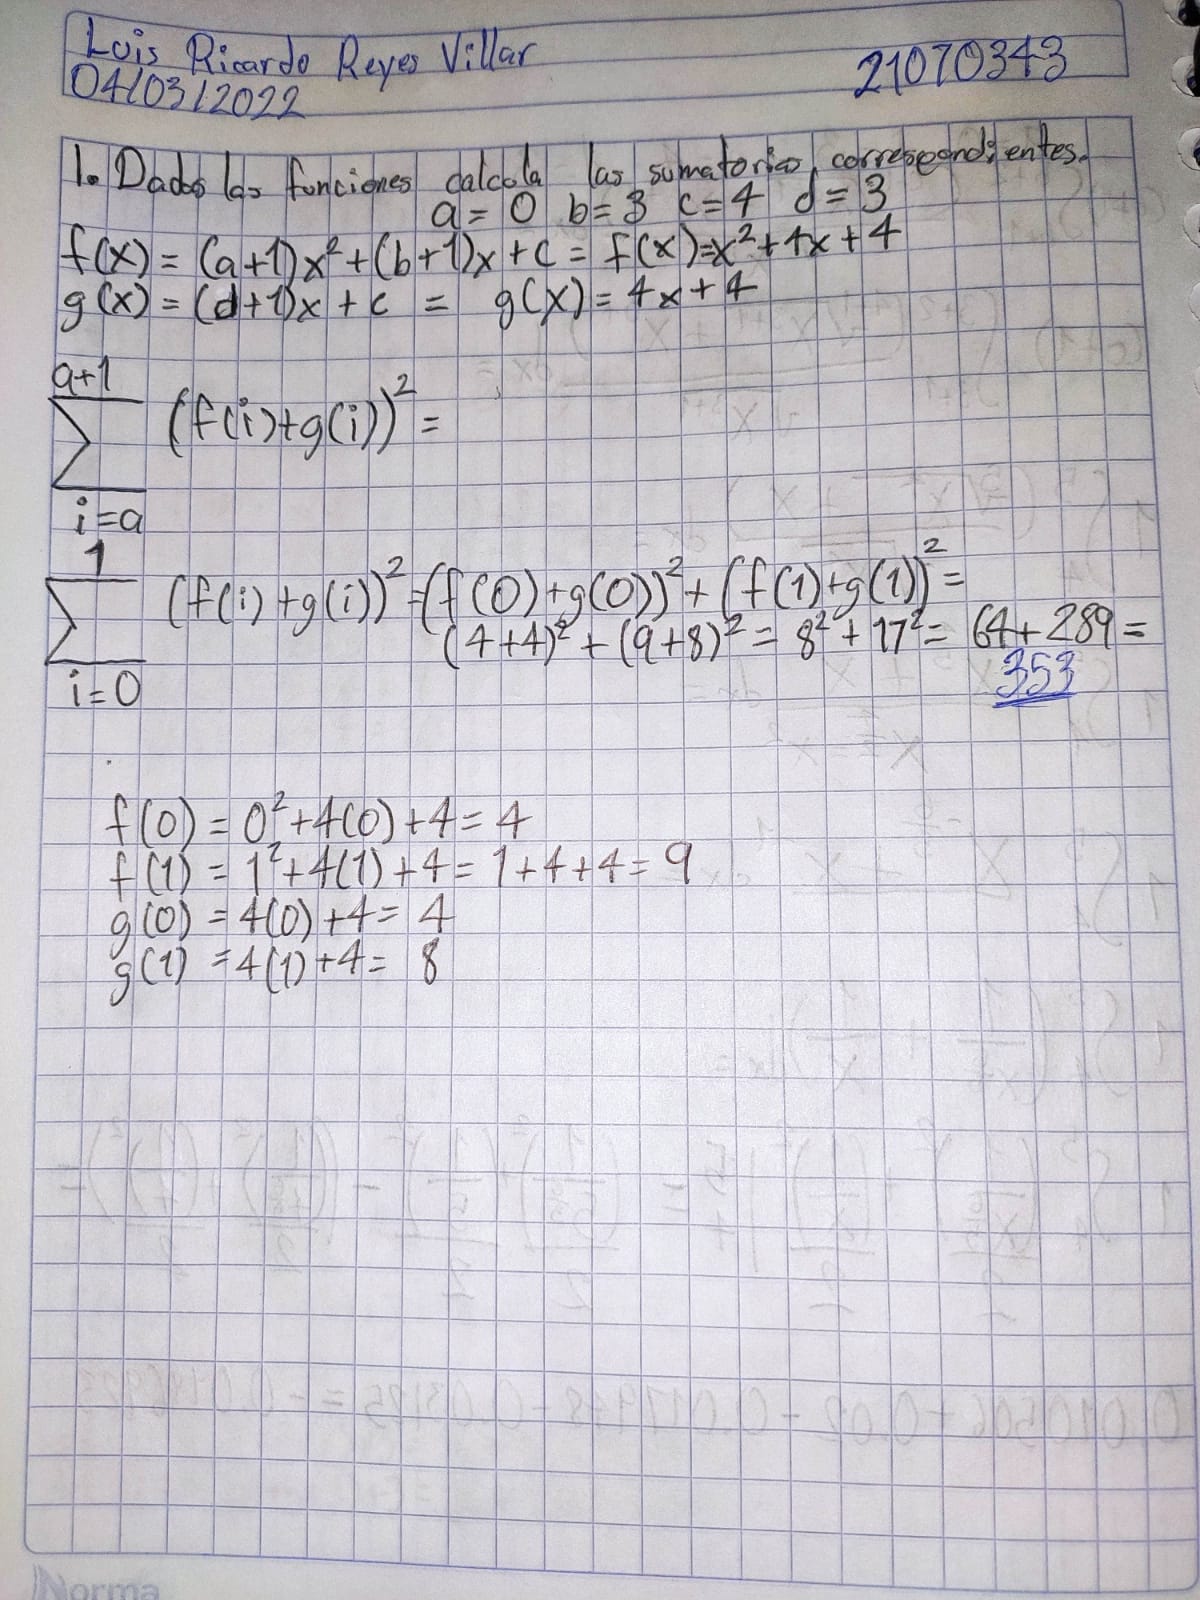 Luis Ricardo Reyes Villar 21070343
04/03/2022
1. Dadas las funciones calcula las sumatorias correspondientes.
a = 0 b = 3 c = 4 d = 3
f(x) = (a+1)x² + (b+1)x + c = f(x) = x² + 4x + 4
g(x) = (d+1)x + c = g(x) = 4x + 4
a+1
∑ (f(i)+g(i))² =
i=a
1
∑ (f(i)+g(i))² = (f(0)+g(0))² + (f(1)+g(1))² =
(4+4)² + (9+8)² = 8² + 17² = 64 + 289 =
353
i=0
f(0) = 0² + 4(0) + 4 = 4
f(1) = 1² + 4(1) + 4 = 1 + 4 + 4 = 9
g(0) = 4(0) + 4 = 4
g(1) = 4(1) + 4 = 8
Norma